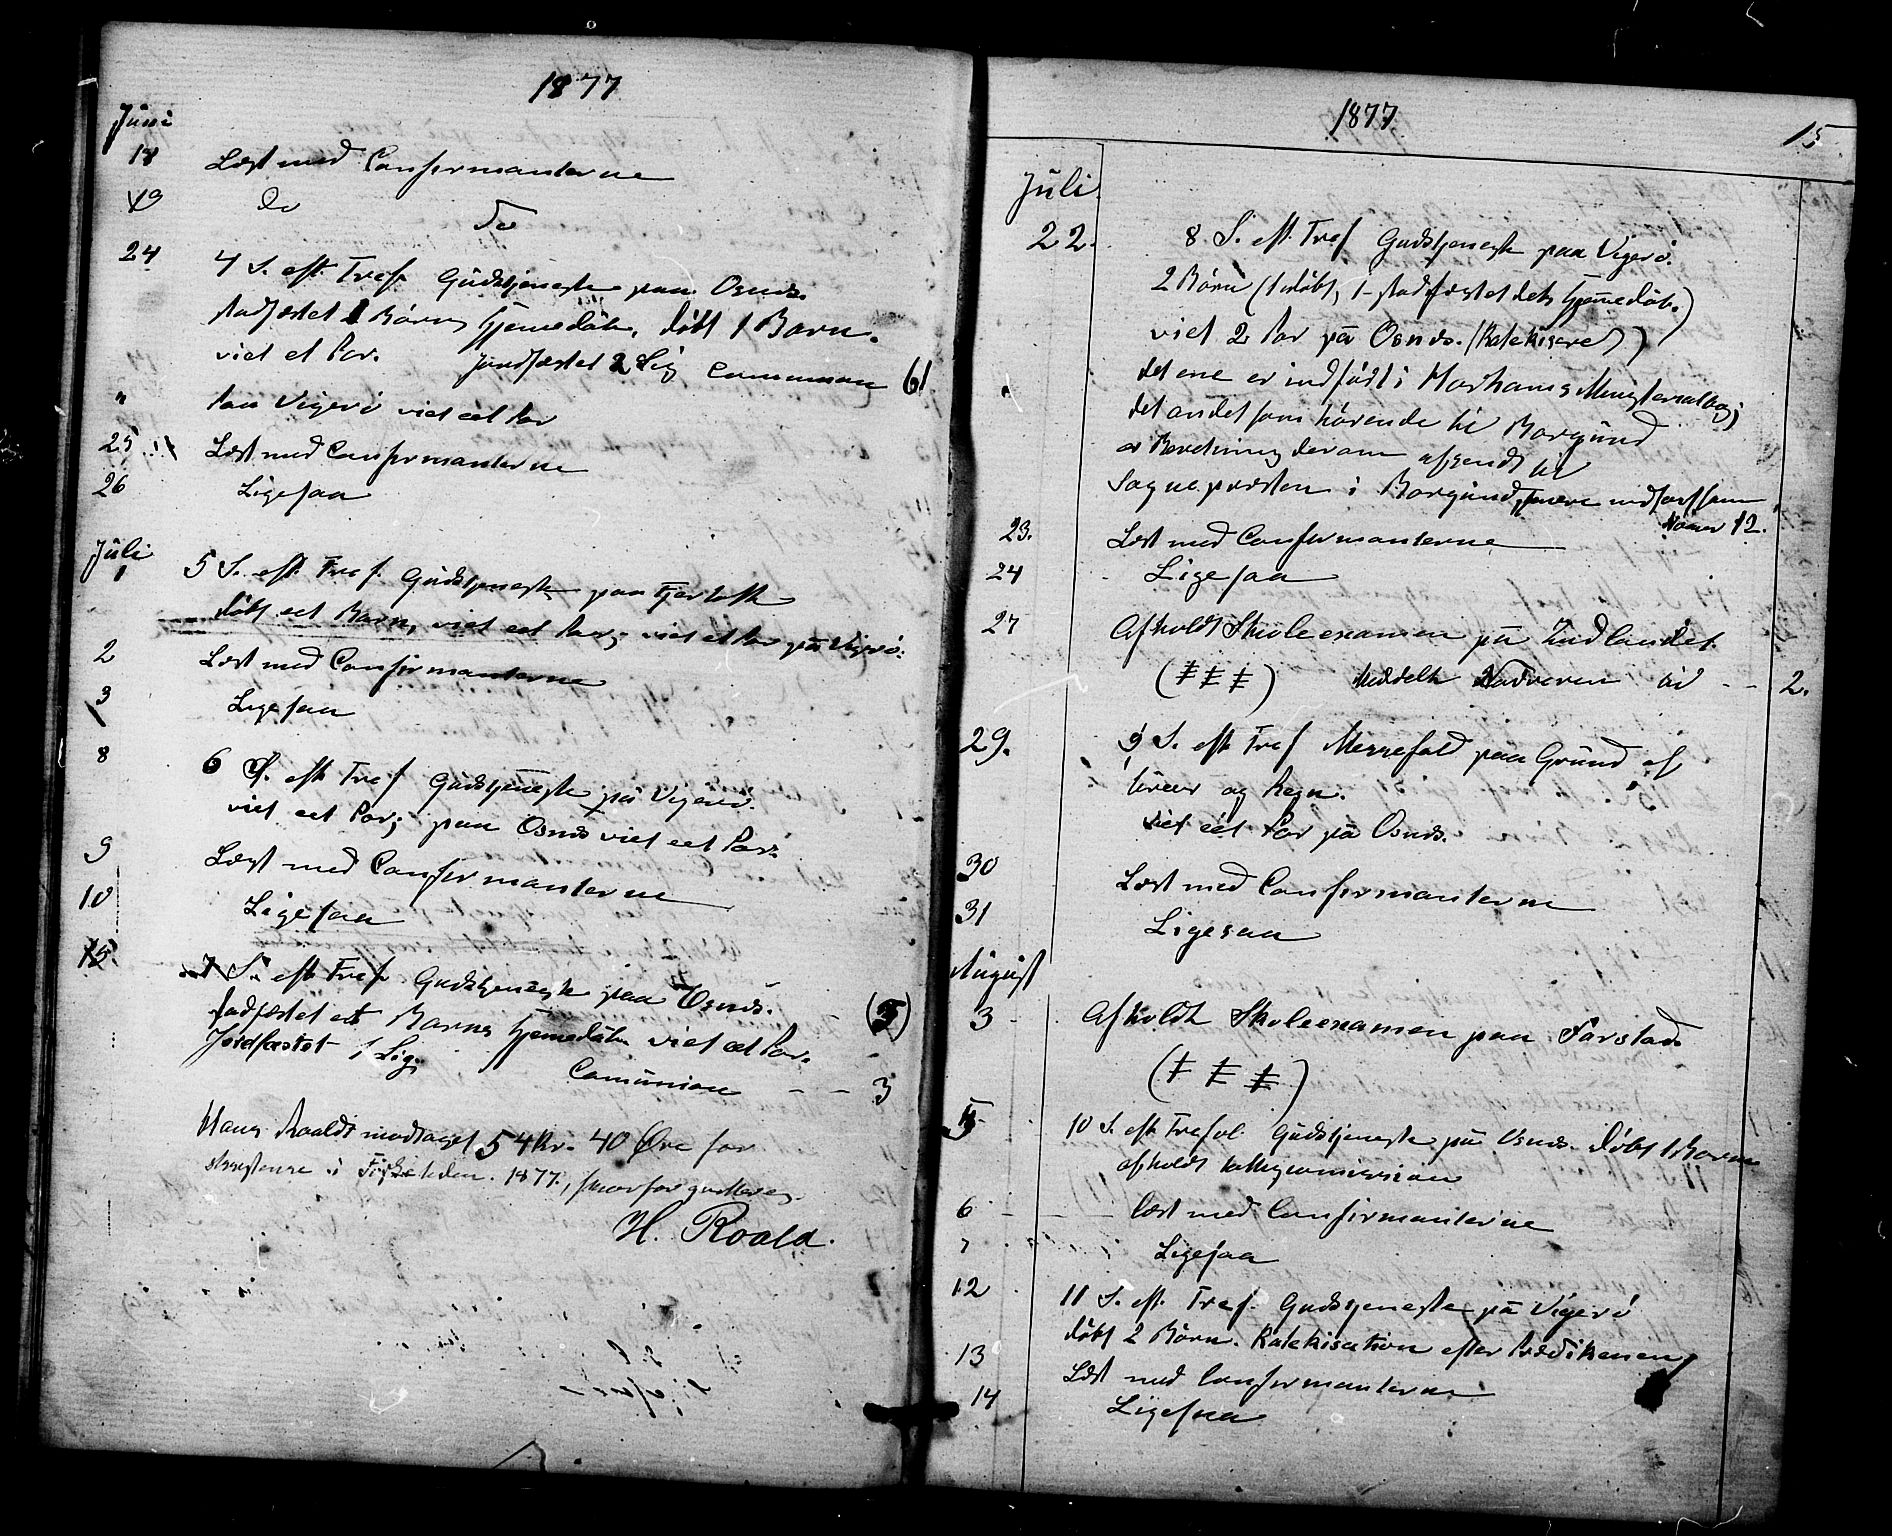 1877
Juni
18 Læst med Confirmanterne
19 do do
24 4 S. eft. Tref. Gudstjeneste paa Osnæs.
stadfæstet 1 Barns Hjemmedåb, døbt 1 Barn.
viet et Par. Jordfæstet 2 Lig Communion 61
" Paa Vigerö viet eet Par
25 Læst med Confirmanterne
26 Ligesaa
Juli
1 5 S. eft. Tref. Gudstjeneste paa Fjertoft
døbt eet Barn, viet eet Par; viet et Par på Vigerö.
2 Læst med Confirmanterne
3 Ligesaa
8 6 S. eft Tref Gudstjeneste på Vigerö.
viet eet Par; paa Osnæs viet eet Par.
9 Læst med Confirmanterne
10 Ligesaa
15. 7 S. eft Tref. Gudstjeneste paa Osnæs.
stadfæstet eet Barns Hjemmedåb viet eet Par.
Jordfæstet 1 Lig. Comunion - - 3
Hans Roaldt modtaget 54 Kr. 40 Øre for
i Fisketiden 1877, hvorfor qvitteres.
H. Roald.
1877
15
Juli.
22. 8 S. eft. Tref Gudstjeneste paa Vigerö.
2 Børn (1 døbt, 1 stadfæstet dets Hjemmedåb.)
viet 2 Par på Osnæs. (Katekiseret)
det ene er indført i Harhams Ministerialbog;
det andet som hørende til Borgund
er Beretning derom afsendt til
Sognepræsten i Borgund, senere indført som
Nomer 12.
23. Læst med Confirmanterne
24 Ligesaa
27 Afholdt Skoleexamen på Indlandet.
(‡ ‡ ‡) Meddelt Nadveren til - - 2.
29. 9 S. eft Tref Messefald paa Grund af
Uveir og Regn.
viet eet Par på Osnæs.
30 Læst med Confirmanterne
31 Ligesaa
August
3 Afholdt Skoleexamen paa Farstad
(‡ ‡ ‡)
5 10 S. eft Tref. Gudstjeneste på Osnæs. døbt 1 Barn
afholdt
6 Læst med Confirmanterne
7 Ligesaa
12 11 S. eft. Tref. Gudstjeneste på Vigerö
døbt 2 Børn. Katekisation efter Prædikenen
13 Læst med Confirmanterne
14 Ligesaa